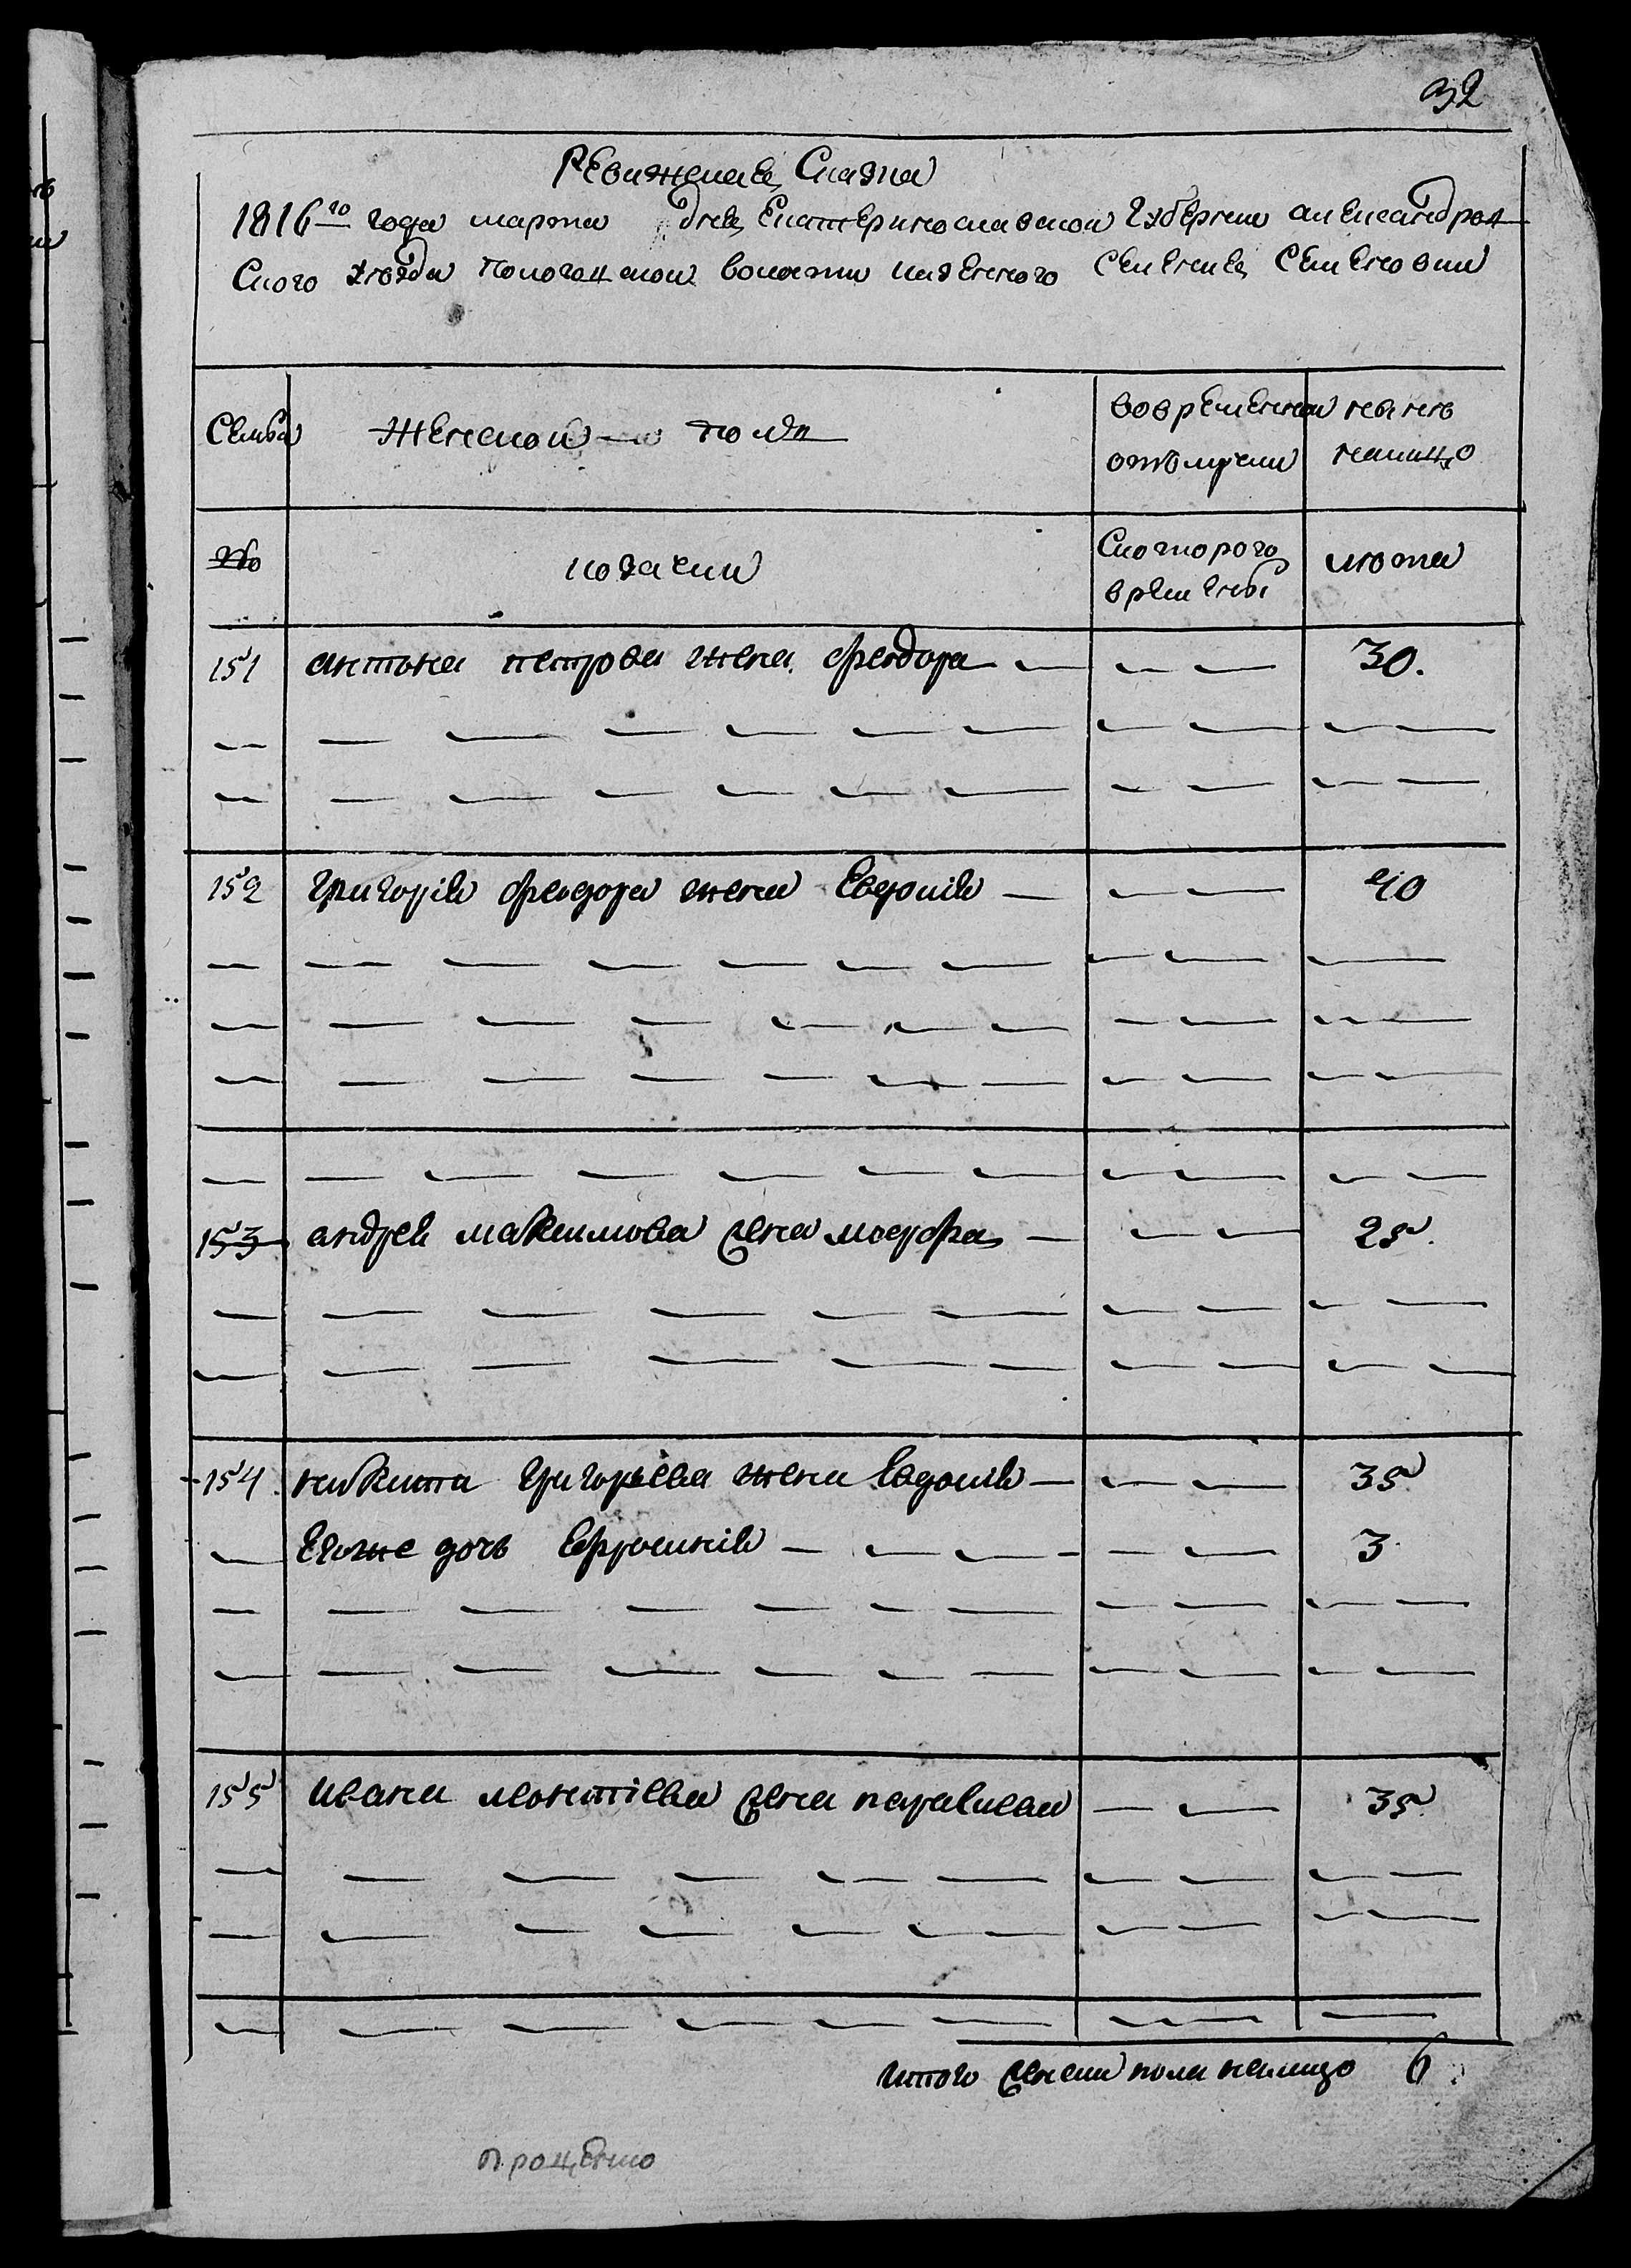 32
Ревижская Сказка
1816го года марта дня Екатеринославской Губернии александров
ского уезда Пологовской волости казенного селения Семеновки
Семьи Женской пола вовременной нынѣ
отлучки налицо
№ казачки Скоторого лѣта
времены
151 антона петрова жена феодора 30.
152 григорія феодора жена Евдокія 40
153 андрея максимова жена марфа 25.
154 никита григорьева жена Евдокія 35
Егоже дочь Ефросинія 3
155 ивана леонтіева жена параскева 35
итого женска пола налицо 6